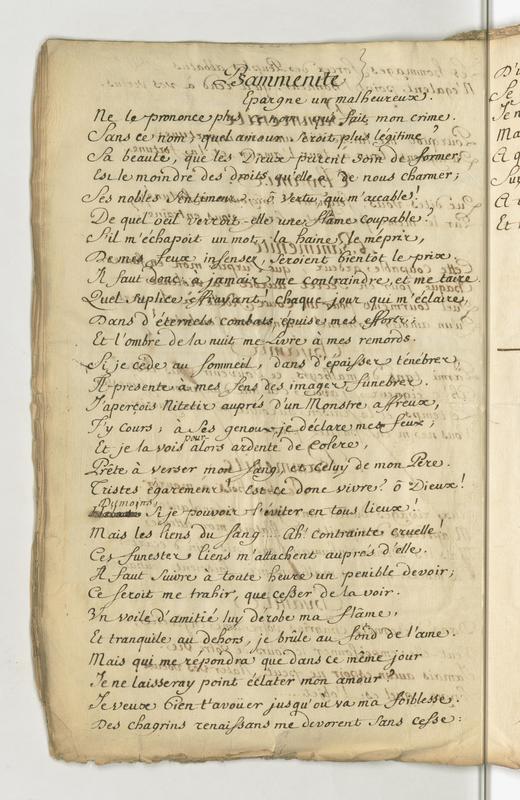 Psammenite
Epargne un malheureux.
Ne le prononce plus ce nom qui fait mon crime.
Sans ce nom, quel amour seroit plus légitime?
Sa beauté, que les Dieux prirent soin de former,
Est le moindre des droits qu'elle a de nous charmer;
Ses nobles sentimens, ô vertu qui m'accable!
De quel oeil verroit-elle une flâme coupable?
S'il m'échapoit un mot, la haine, le mépris,
De mes feux insensez seroient bientôt le prix;
Il faut donc à jamais me contraindre, et me taire.
Quel suplice effrayant, chaque jour qui m'éclaire,
Dans d'éternels combats épuise mes efforts;
Et l'ombre de la nuit me livre à mes remords.
Si je cède au sommeil, dans d'épaisses ténèbres,
Il presente à mes sens des images funebres.
J'aperçois Nitetis auprés d'un Monstre affreux,
J'y cours; à ses genoux, je déclare mes feux;
Et je la vois pour lors ardente de colere,
Prête à verser mon sang, et celuy de mon Pere.
Tristes égaremens! Est-ce donc vivre? ô Dieux!
Du moins, si je pouvois l'éviter en tous lieux!
Mais les liens du sang... Ah! contrainte cruelle!
Ces funestes liens m'attachent auprés d'elle.
Il faut suivre à toute heure un penible devoir;
Ce seroit me trahir, que cesser de la voir.
Un voile d'amitié luy dérobe ma flâme,
Et tranquile au dehors, je brûle au fond de l'ame.
Mais qui me repondra que dans ce même jour
Je ne laisseray point éclater mon amour?
Je veux bien t'avoüer jusqu'où va ma foiblesse.
Des chagrins renaissans me devorent sans cesse: